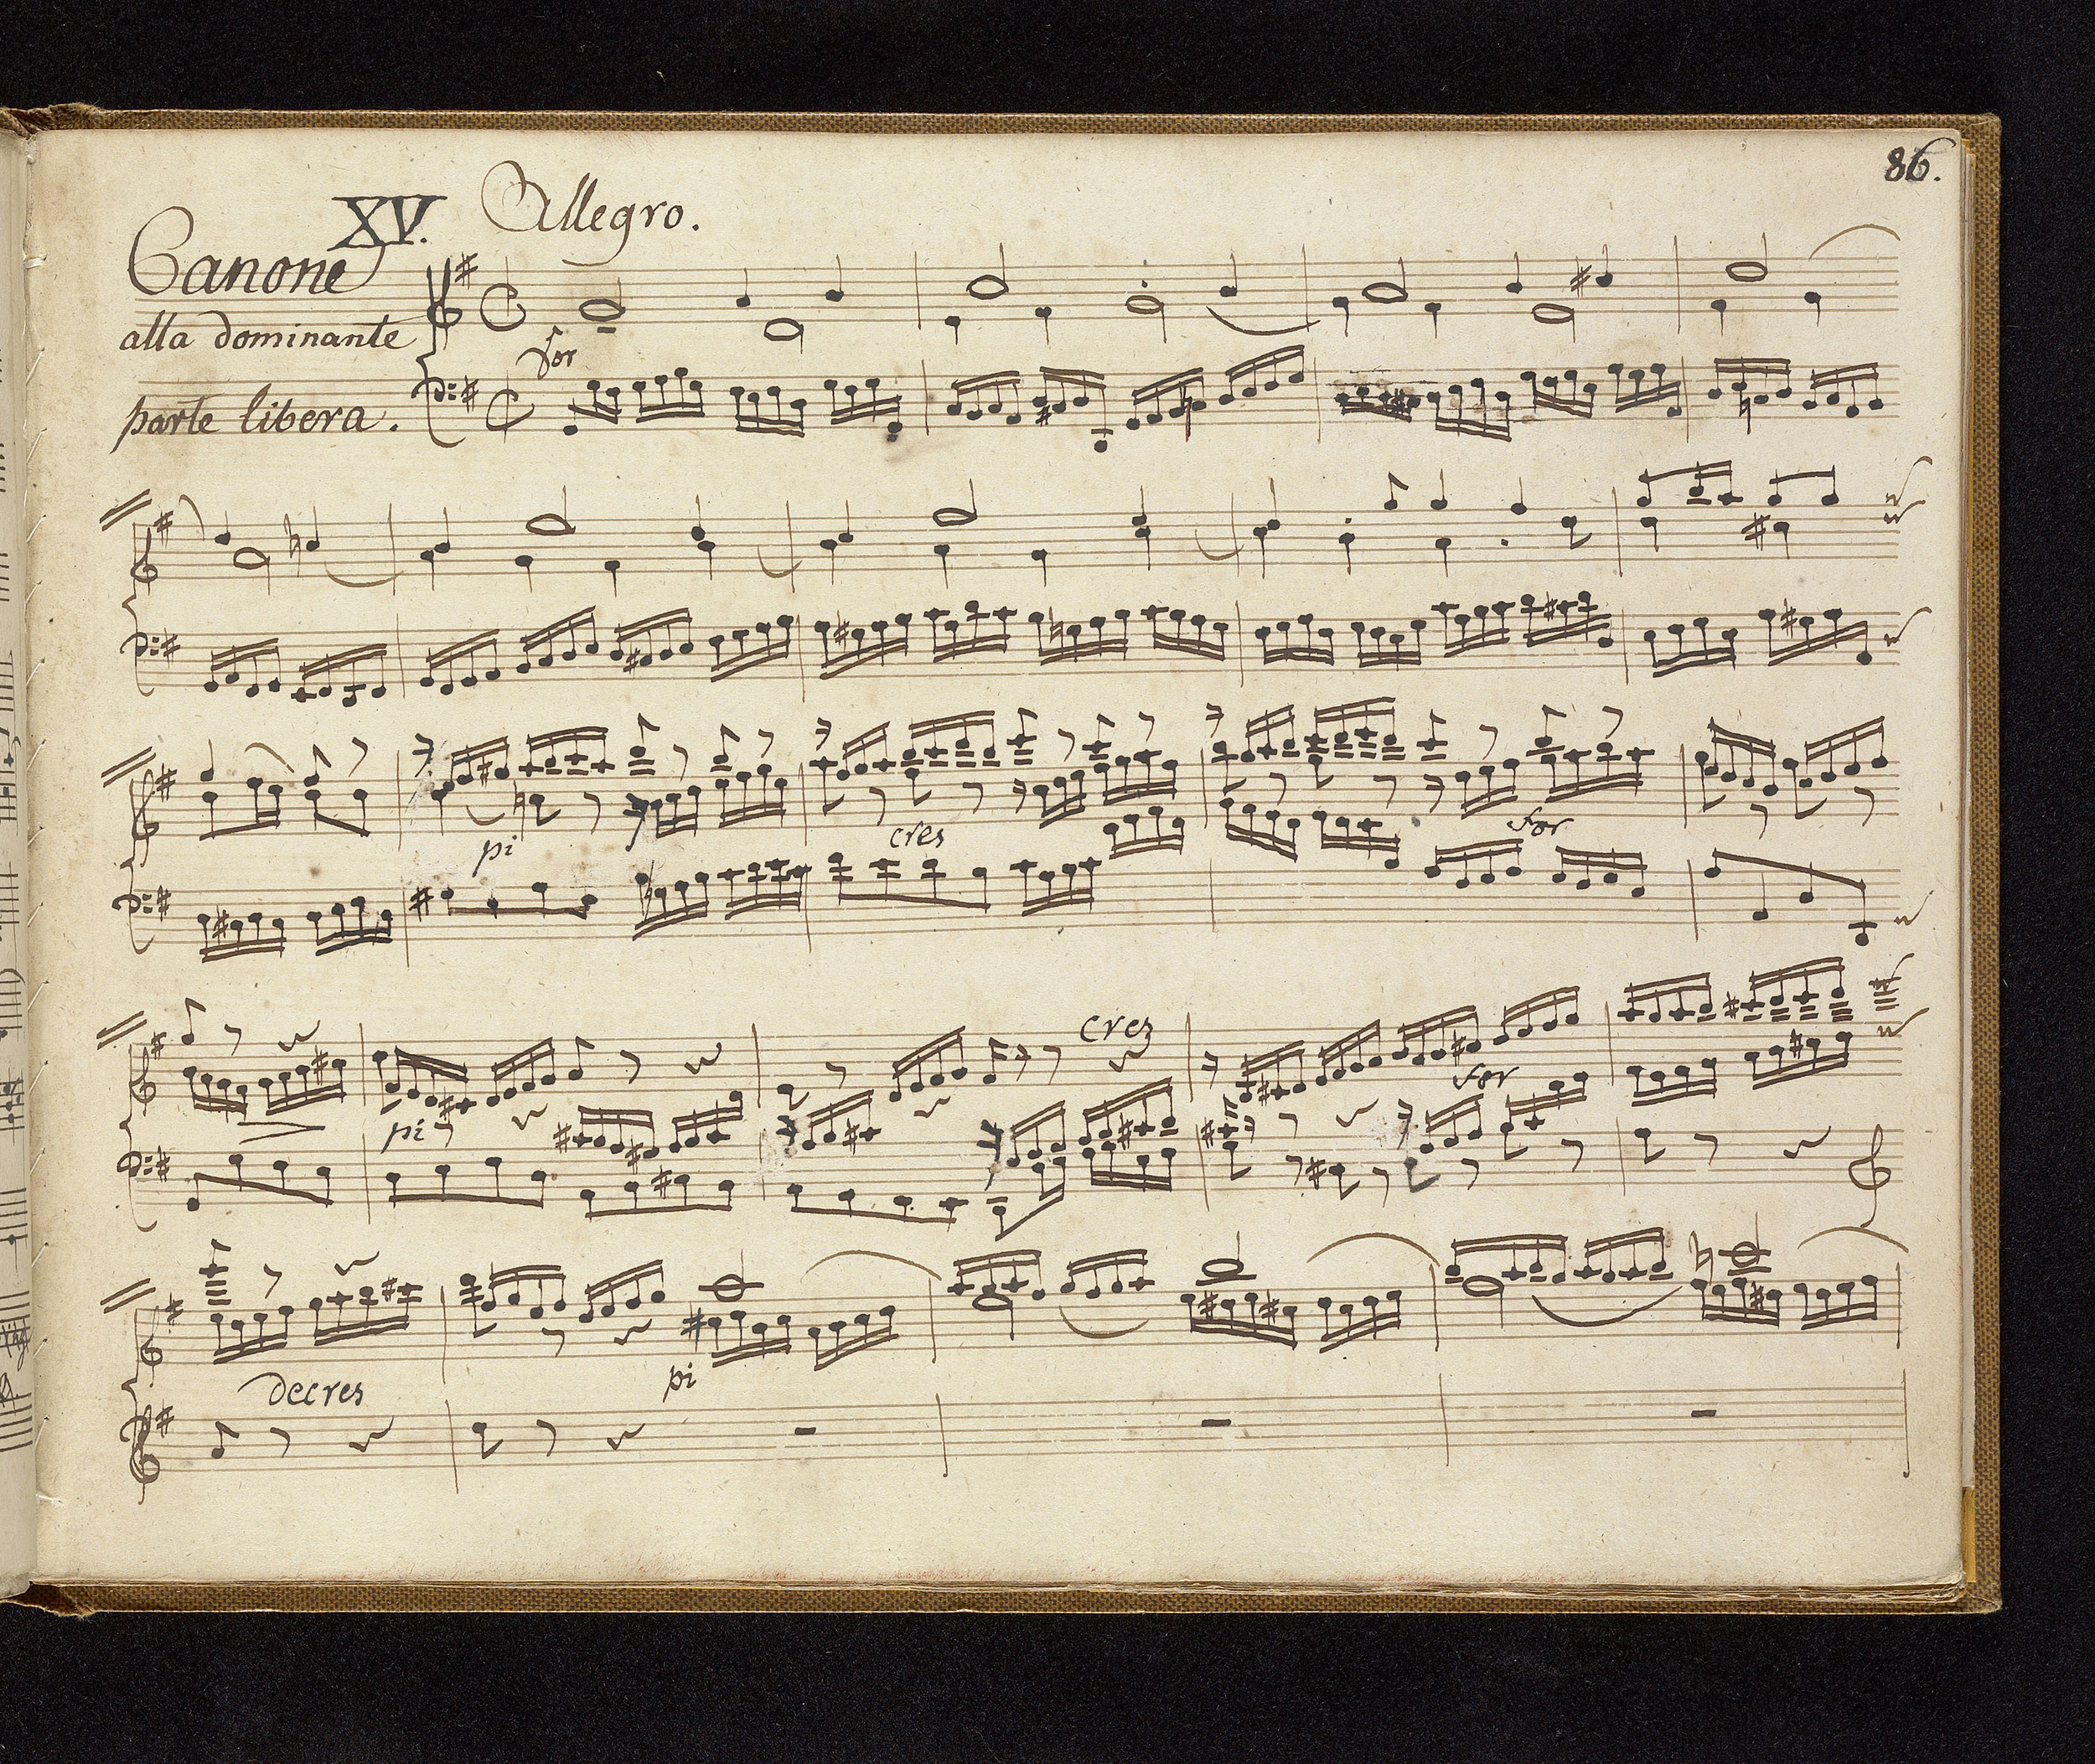 86.
XV. Allegro.
Canone
alla dominante
for
parte libera.
pi
cres
for
cres
pi
for
decres
pi